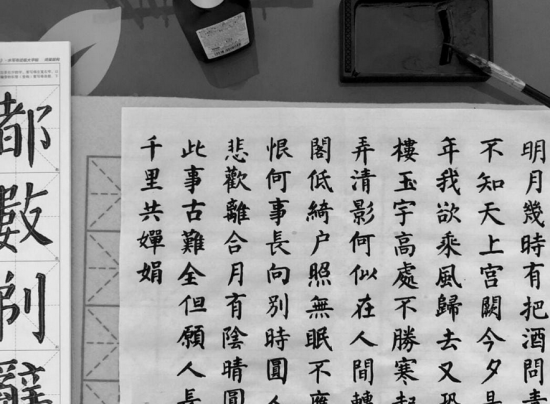 明月幾時有把酒問青
不知天上宮闕今夕是
年我欲乘風歸去又恐
樓玉宇高處不勝寒起
弄清影何似在人間轉
閣低綺户照無眠不應
恨何事長向別時圓人
悲歡離合月有陰晴圓
此事古難全但願人長
千里共嬋娟
都數辭